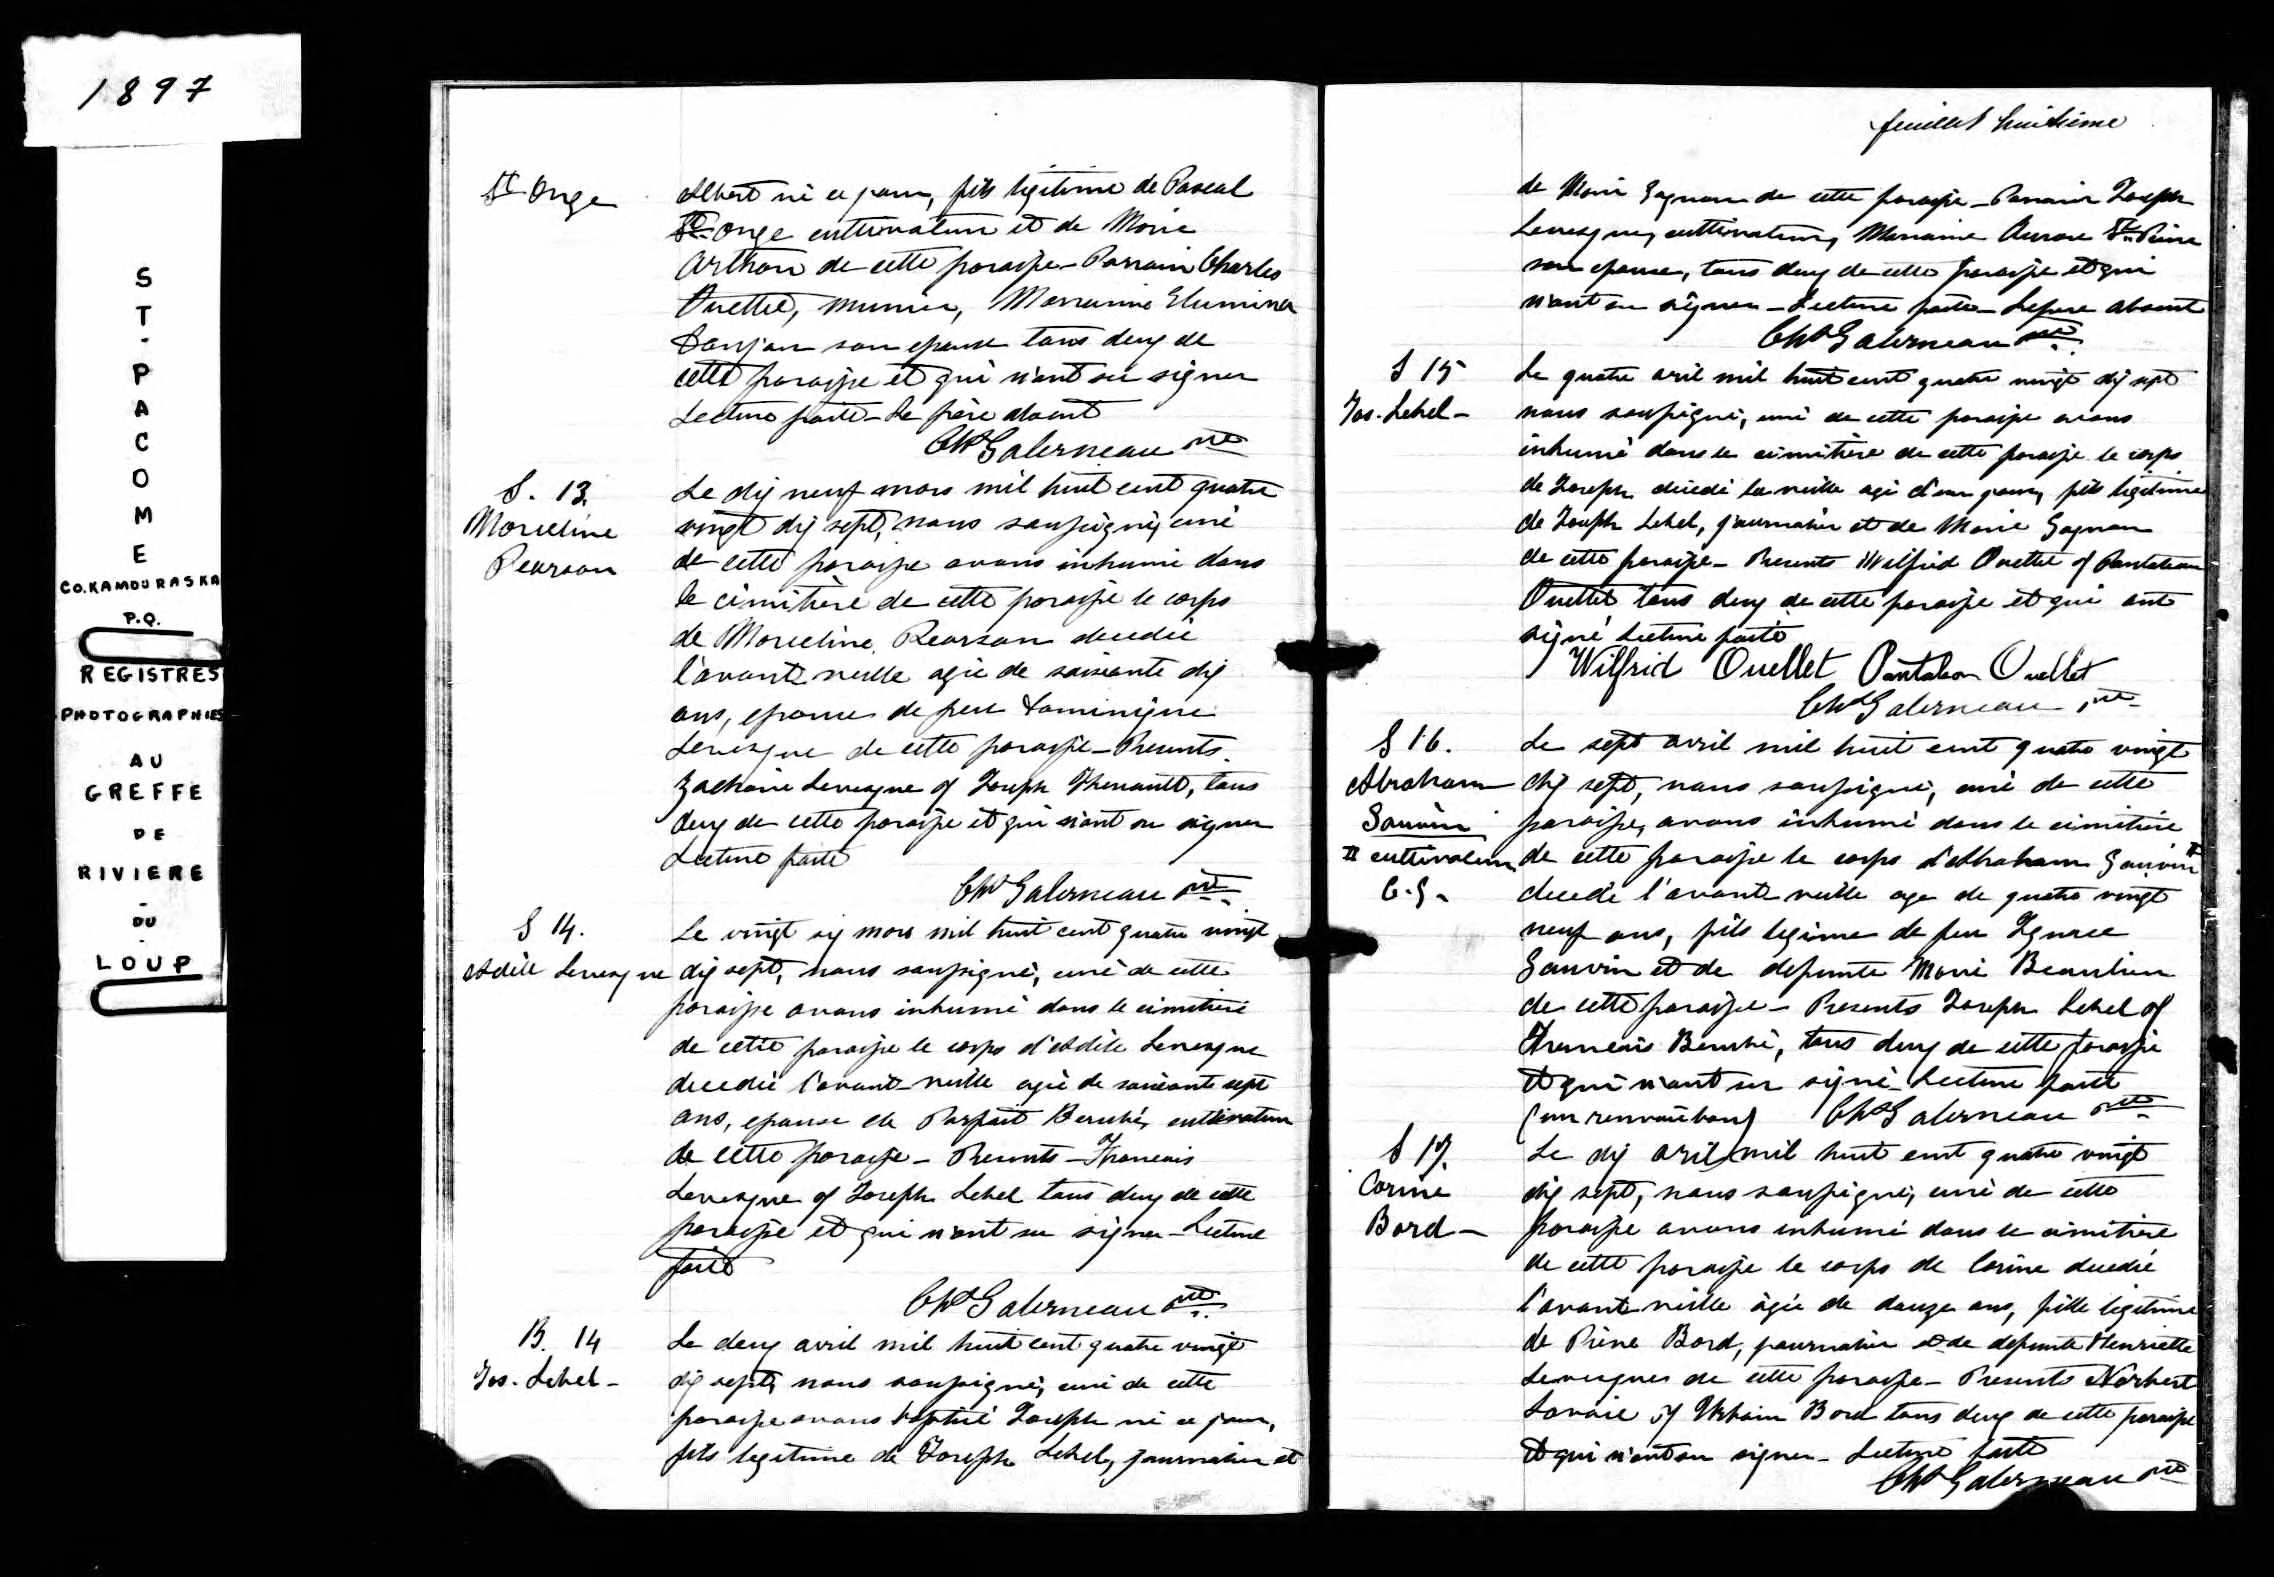 1897
ST-PACOME
CO. KAMOURASKA
P.Q.
REGISTRES
PHOTOGRAPHIES
AU
GREFFE
DE
RIVIERE
-
DU
-
LOUP
St Onge
Albert né ce jour, fils legitime de Pascal
St Onge cultivateur et de Marie
de cette paroisse - Parrain Charles
Ouellet, Marraine Elumina
son epouse tous deux de
cette paroisse et qui n'ont su signer
Lecture faite - Le père absent
Chs Galerneau ptre
S. 13.
Marceline
Pearson
Le dix neuf mars mil huit cent quatre
vingt dix sept, nous soussigné, curé
de cette paroisse avons inhumé dans
le cimitière de cette paroisse le corps
de Marceline Pearson decedée
l'avant veille agée de soixante dix
ans, epouse de feu Dominique
Levesque de cette paroisse - Presents
Zacharie Levesque & Joseph Theriault, tous
deux de cette paroisse et qui n'ont su signer
Lecture faite
Chs Galerneau ptre
S 14.
Adèle Levesque
Le vingt six mars mil huit cent quatre vingt
dix sept, nous soussigné, curé de cette
paroisse avons inhumé dans le cimitière
de cette paroisse le corps d'Adèle Levesque
decedée l'avant-veille agée de soixante sept
ans, epouse de Parfait Berubé, cultivateur
de cette paroisse - Presents - Francois
Levesque & Joseph Lebel tous deux de cette
paroisse et qui n'ont su signer - Lecture
faite
Chs Galerneau ptre
B. 14
Jos. Lebel -
Le deux avril mil huit cent quatre vingt
dix sept, nous soussigné, curé de cette
paroisse avons baptisé Joseph né ce jour,
fils legitime de Joseph Lebel, journalier et
feuillet huitième
de Marie Gagnon de cette paroisse - Parrain Joseph
Levesque, cultivateur, Marraine Aurore St Pierre
son epouse, tous deux de cette paroisse et qui
n'ont su signer - Lecture faite - Le pere absent
Chs Galerneau ptre
S 15
Jos. Lebel -
Le quatre avril mil huit cent quatre vingt dix sept
nous soussigné, curé de cette paroisse avons
inhumé dans le cimitière de cette paroisse le corps
de Joseph decedé la veille agé d'un jour, fils legitime
de Joseph Lebel, journalier et de Marie Gagnon
de cette paroisse - Presents Wilfrid Ouellet & Pantaleon
Ouellet tous deux de cette paroisse et qui ont
signé Lecture faite
Wilfrid Ouellet Pantaleon Ouellet
Chs Galerneau ptre
S 16.
Abraham
Gauvin
# cultivateur
C.G.
Le sept avril mil huit cent quatre vingt
dix sept, nous soussigné, curé de cette
paroisse, avons inhumé dans le cimitière
de cette paroisse le corps d'Abraham Gauvin #
decedé l'avant veille age de quatre vingt
neuf ans, fils legime de feu Ignace
Gauvin et de defunte Marie Beaulieu
de cette paroisse - Presents Joseph Lebel &
Francois Berubé, tous deux de cette paroisse
et qui n'ont su signé - Lecture faite
(un renvoi bon) Chs Galerneau ptre
S 17.
Corine
Bard -
Le dix avril mil huit cent quatre vingt
dix sept, nous soussigné, curé de cette
paroisse avons inhumé dans le cimitière
de cette paroisse le corps de Corine decedé
l'avant veille âgée de douze ans, fille legitime
de Pierre Bard, journalier et de defunte Henriette
Levesques de cette paroisse - Presents Norbert
Lavoie & Urbain Bard tous deux de cette paroisse
et qui n'ont su signer - Lecture faite
Chs Galerneau ptre